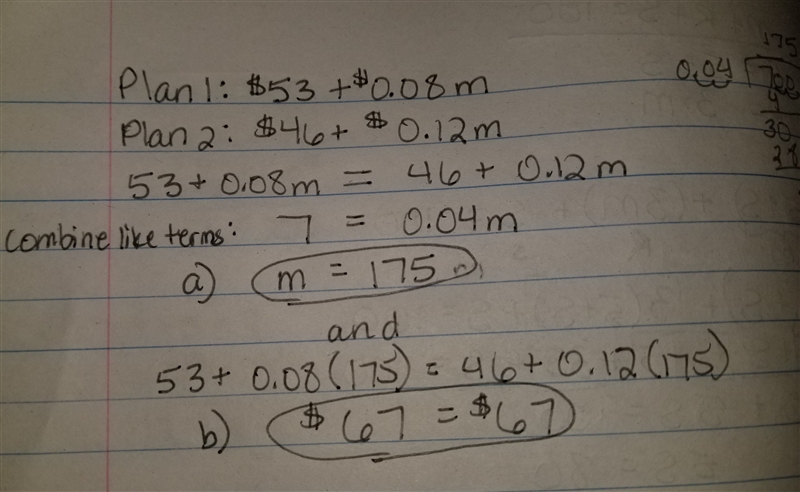 Plan 1: $53 + $0.08m
Plan 2: $46 + $ 0.12m
53 + 0.08m = 46 + 0.12m
Combine like terms: 7 = 0.04m
a) m = 175
and
53 + 0.08(175) = 46 + 0.12(175)
b) $67 = $67
175
0.04 700
4
30
28